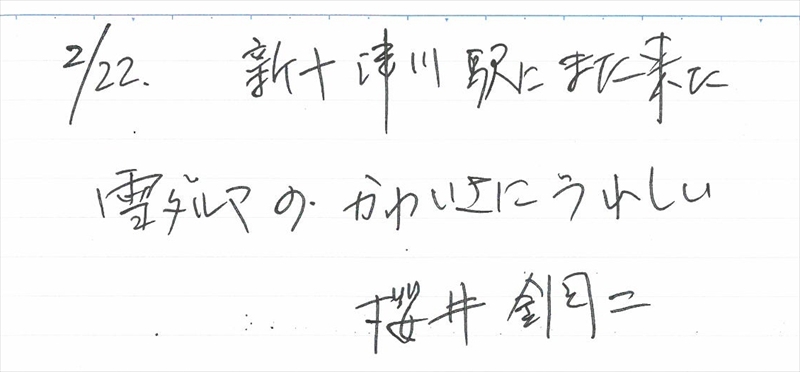 2/22. 新十津川駅にまた来た
雪ダルマの かわいさにうれしい
櫻井 二